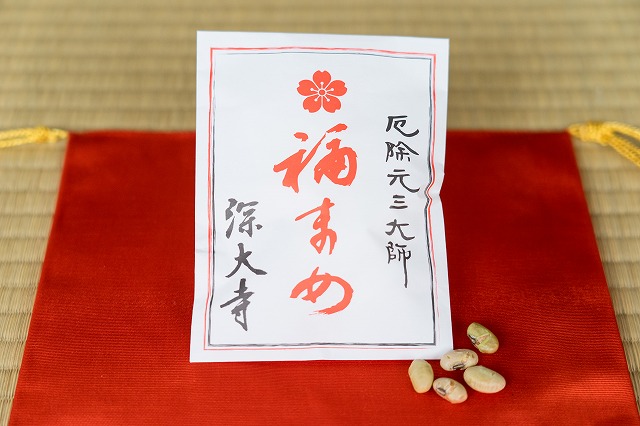 厄除元三大師
福まめ
深大寺